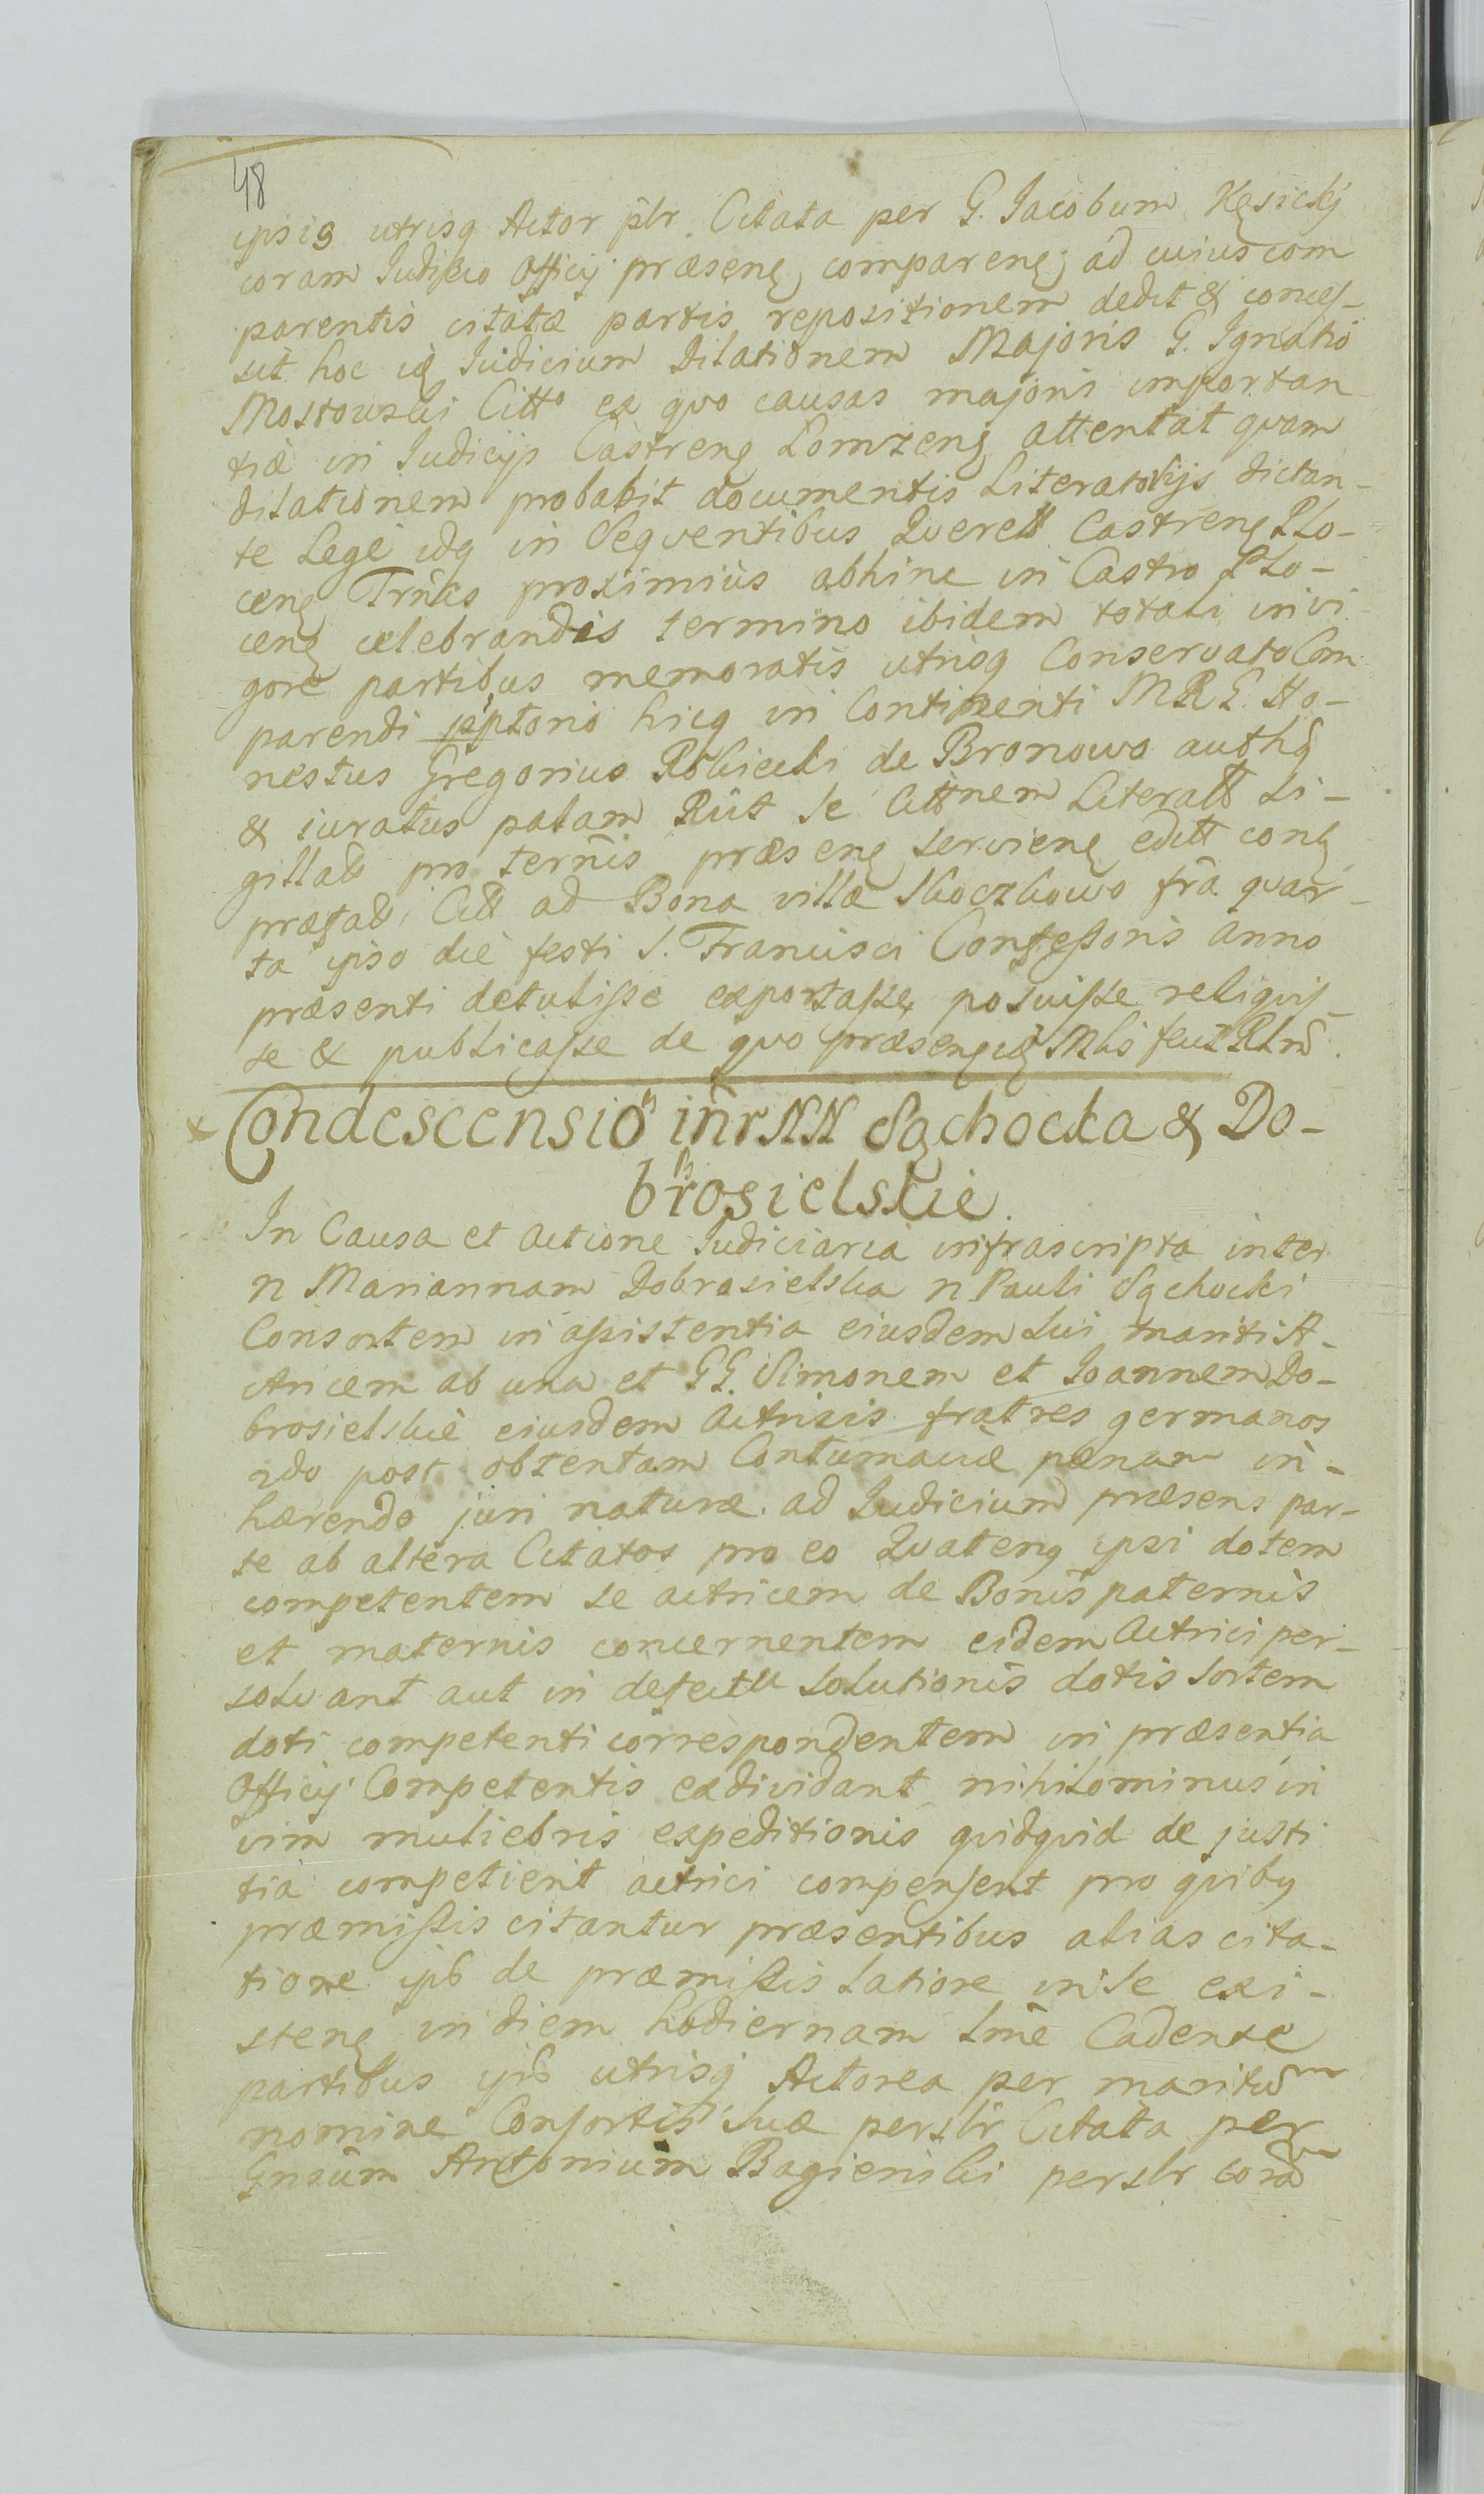 48
ipsis utrisq Actor plr. Citata per G. Jacobum Kęsickÿ
coram Judicio Officij præsenę comparenę; ad cuius com
parentis citatæ partis repositionem dedit & conces-
sit hoc idę Judicium Dilationem Majoris G. Ignatio
Mostowski Citto ex qvo causas majoris importan
tiæ in Judicijs Castrenę Lomzenę attentat qvam
dilationem probabit documentis Literatorijs dictan-
te Lege idq in Seqventibus Qverell Castrenę Plo-
cenę Trmis proximius abhinc in Castro Plo-
cenę celebrandis termino ibidem totali in vi
gore partibus memoratis utrisq Conservato Com
parendi hicq in Continenti MRG. Ho-
nestus Gregorius Robiecki de Bronowo auth
& iuratus palam Rlit se Cittnem Literall Si-
gillatt pro ternis præsenę servienę editt conę
præfatt, Citt ad Bona villæ Skoczkowo fra qvar-
ta ipso die festi S. Francisci Confessoris anno
præsenti detulisse exportasse, posuisse reliqvis-
se & publicasse de qvo præsenę idę Mlis fecit Rlnē.
Condescensio inr NN Sąchocka & Do-
brosielskie.
In Causa et actione Judiciaria infrascripta inter
N Mariannam Dobrosielska N Pauli Sąchocki
Consortem in assistentia eiusdem sui mariti A-
ctricem ab una et GG. Simonem et Joannem Do-
brosielskie eiusdem Actricis fratres germanos
2do post obtentam Contumaciæ pænam in-
hærendo juri naturæ ad Judicium præsens par-
te ab altera Citatos pro eo Qvatenq ipsi dotem
competentem se actricem de Bonis paternis
et maternis concernentem eidem Actrici per-
solvant aut in defectu solutionis dotis sortem
doti competenti correspondentem in præsentia
Officij Competentis exdividant nihilominus in
vim muliebris expeditionis qvidqvid de justi
tia competierit actrici compensent pro qvibq
præmissis citantur præsentibus alias cita-
tione ipsā de præmissis latiore in se exi-
stenę in diem hodiernam Lme Cadente
partibus ipis utrisq Actorea per maritum
nomine Consortis suæ perslr Citata per
Gnsum Antonium Bagienski perslr coram